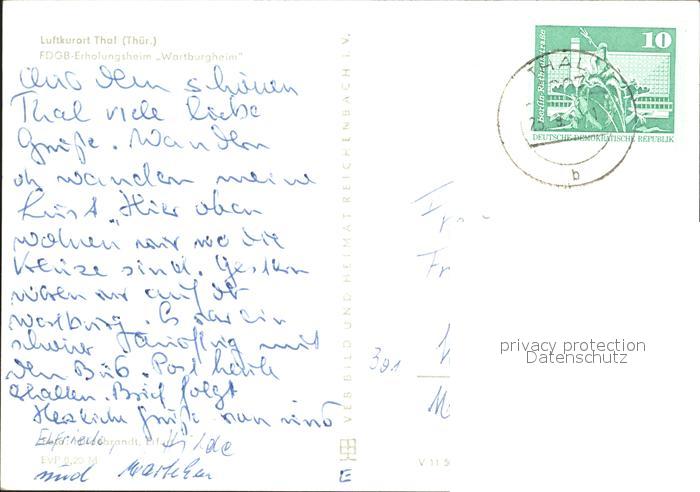 Luftkurort Thal (Thür.)
FDGB-Erholungsheim „Wartburgheim"
Aus dem schönen
Thal viele liebe
Grüße. Wandern
oh wandern meine
Lust. Hier oben
wohnen wir wo die
Kreuze sind. Gestern
waren wir auf der
Wartburg. Es war ein
schöner Tausflug mit
dem Bus. Post heute
erhalten. Brief folgt
Herzliche Grüße von uns
Elfriede, Hilde
und
EVP 0,20 M
VEB BILD UND HEIMAT REICHENBACH I. V.
V 11 5
E
10
Berlin-Rathausstraße
DEUTSCHE DEMOKRATISCHE REPUBLIK
THAL
b
Fr
391
privacy protection
Datenschutz